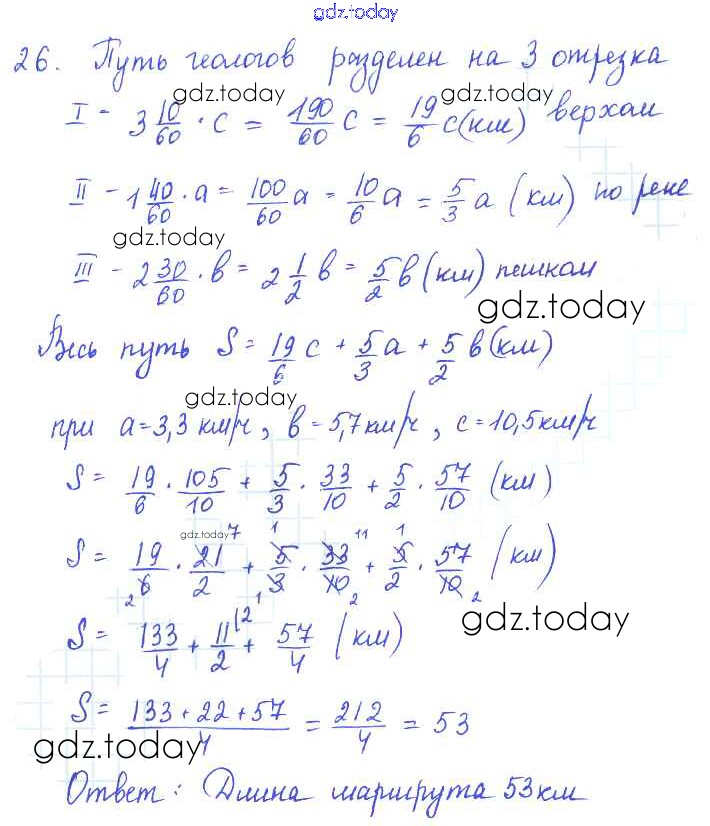 gdz.today
26. Путь геологов разделен на 3 отрезка
gdz.today gdz.today
I - 3 10/60 · c = 190/60 c = 19/6 c (км) верхом
II - 1 40/60 · a = 100/60 a = 10/6 a = 5/3 a (км) по реке
gdz.today
III - 2 30/60 · в = 2 1/2 в = 5/2 в (км) пешком
gdz.today
Весь путь S = 19/6 c + 5/3 a + 5/2 в (км)
gdz.today
при a=3,3 км/ч, в=5,7 км/ч, c=10,5 км/ч
S = 19/6 · 105/10 + 5/3 · 33/10 + 5/2 · 57/10 (км)
gdz.today 7 1 11 1
S = 19/6 · 21/2 + 5/3 · 33/10 + 5/2 · 57/10 (км)
2 1 2 2
gdz.today
S = 133/4 + 11/2 (2 + 57/4 (км)
S = 133+22+57/4 = 212/4 = 53
gdz.today
Ответ: Длина маршрута 53 км
gdz.today